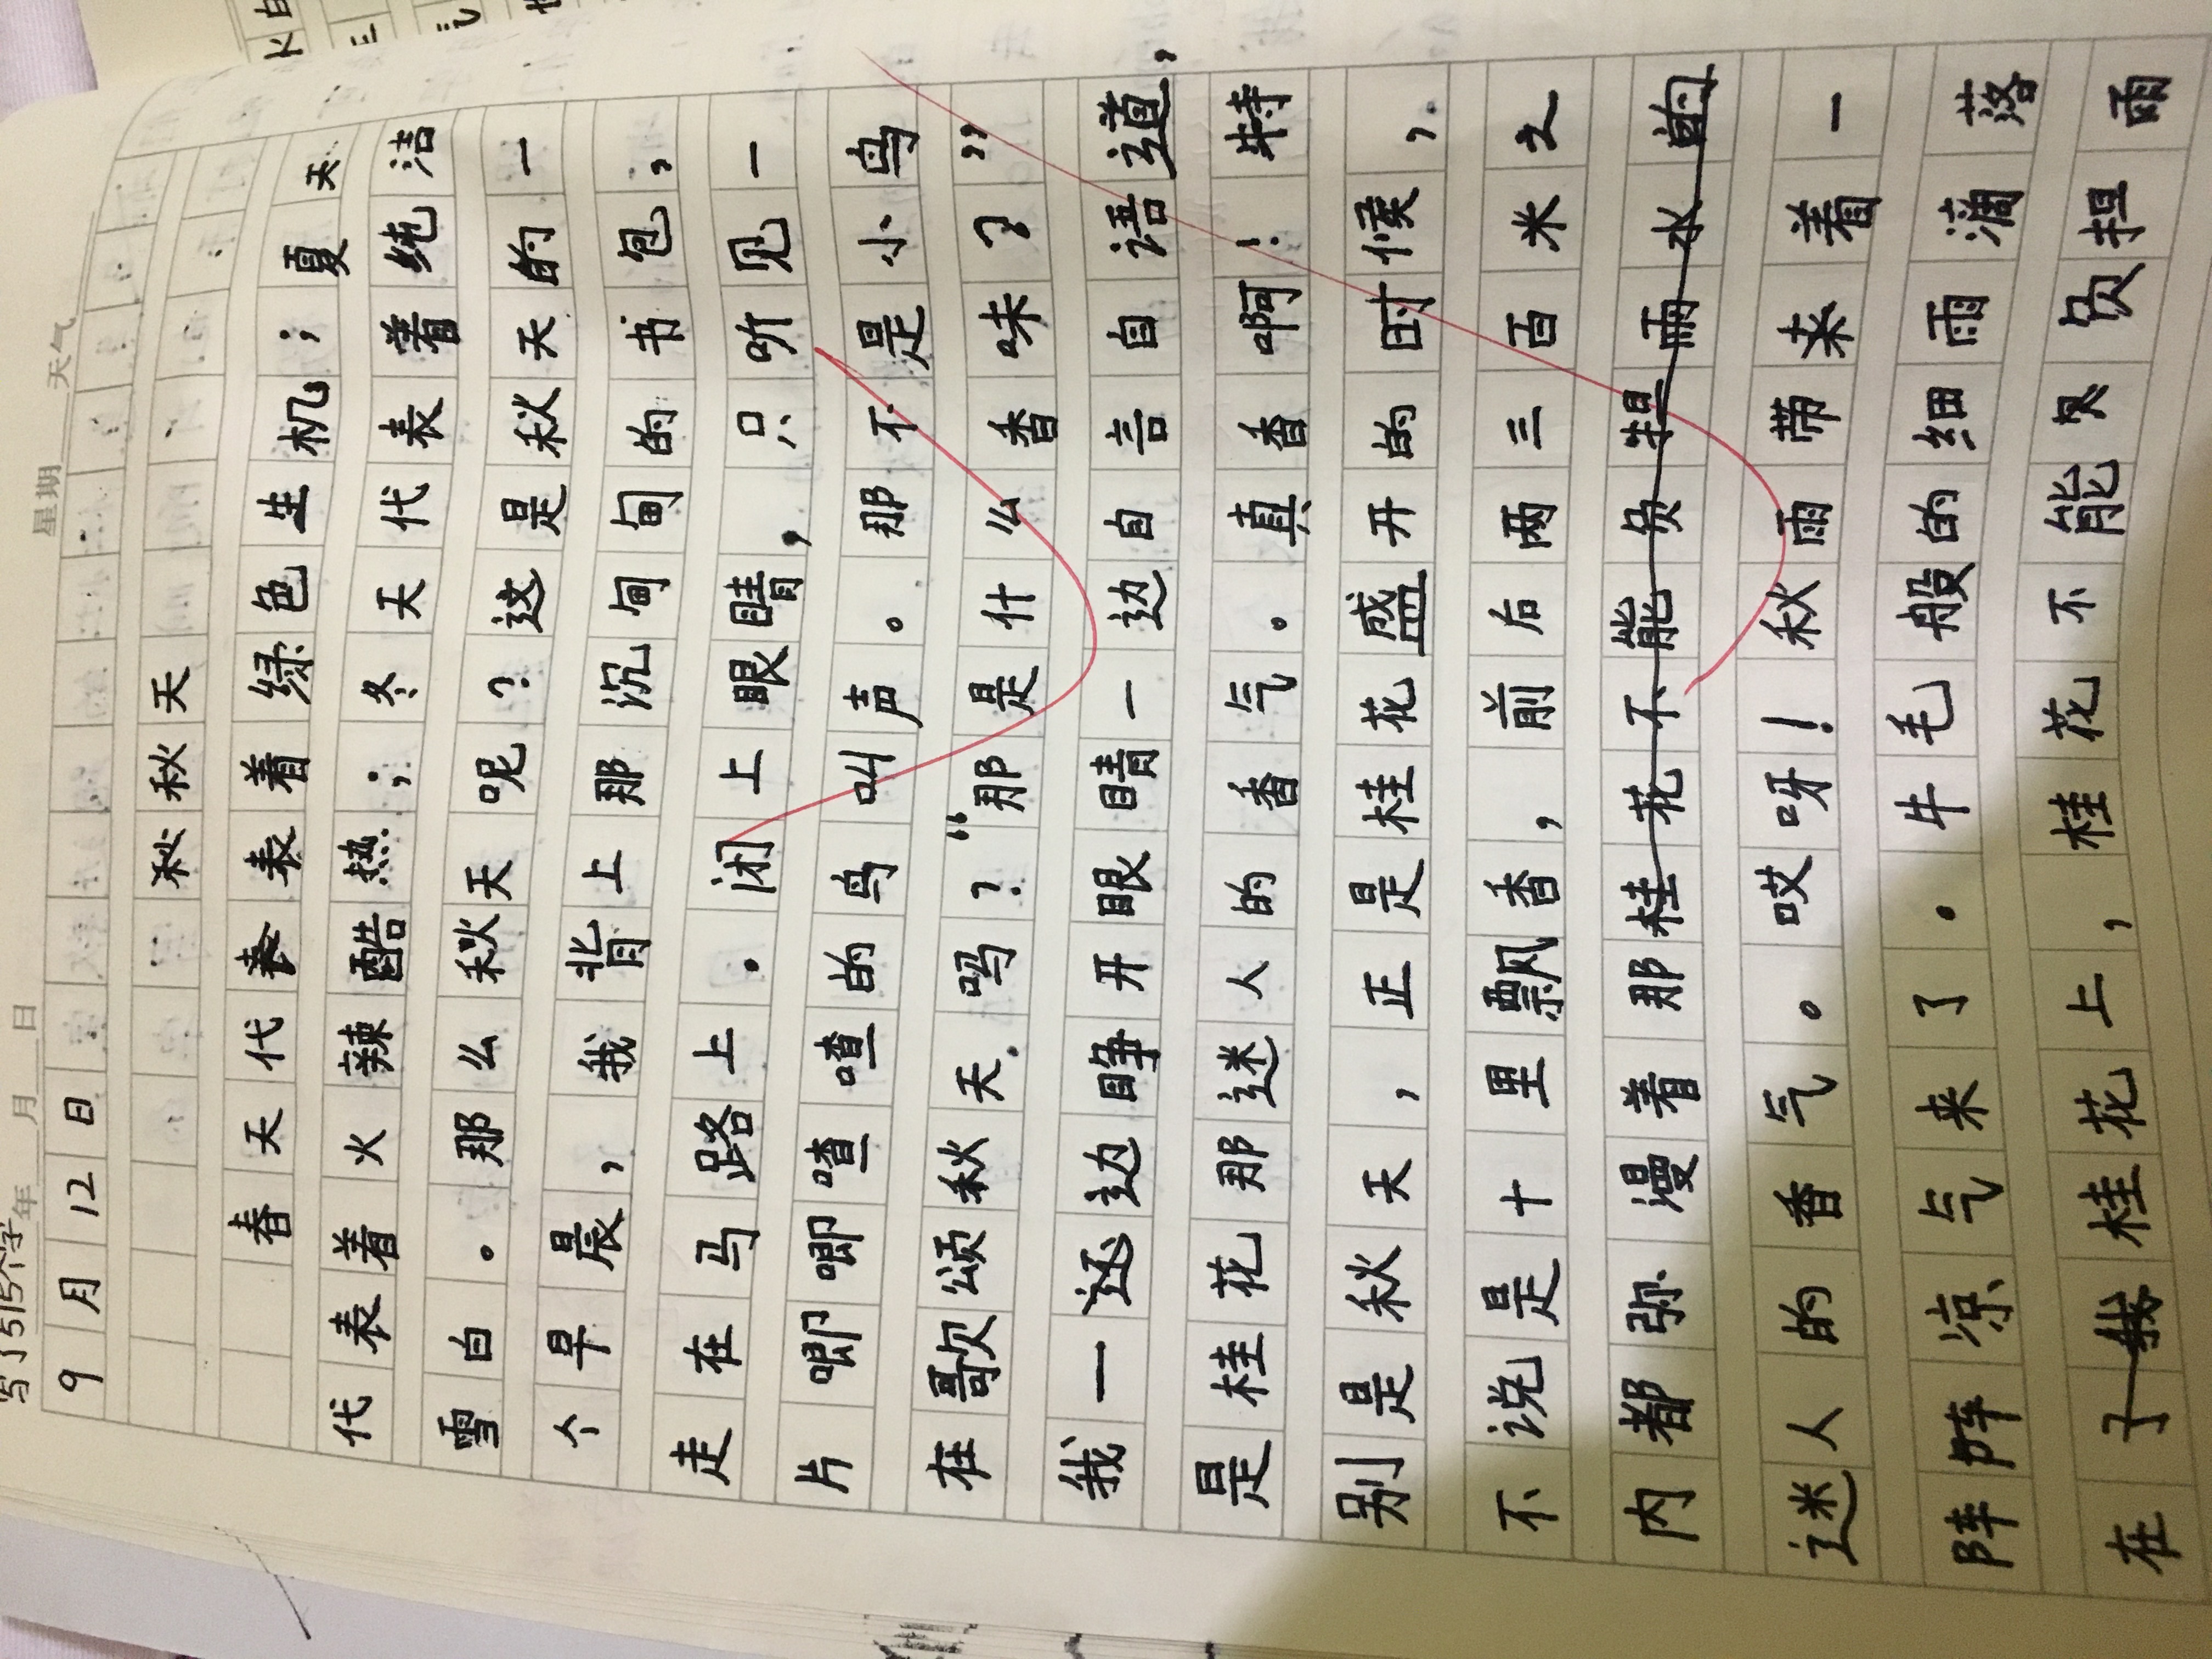 写了515个字
年 月 日 星期 天气
9月12日
秋秋天
春天代表着绿色生机；夏天
代表着火辣酷热；冬天代表着纯洁
雪白。那么秋天呢？这是秋天的一
个早晨，我背上那沉甸甸的书包，
走在马路上.闭上眼睛，只听见一
片唧唧喳喳的鸟叫声。那不是小鸟
在歌颂秋天吗？“那是什么香味？”
我一还边睁开眼睛一边自言自语道，
是桂花那迷人的香气。真香啊！特
别是秋天，正是桂花盛开的时候，
不说是十里飘香，前后两三百米之
内都弥漫着那桂花不能负担雨水的
迷人的香气。哎呀！秋雨带来着一
阵阵凉气来了.牛毛般的细雨滴落
在了我桂花上，桂花不能负担雨